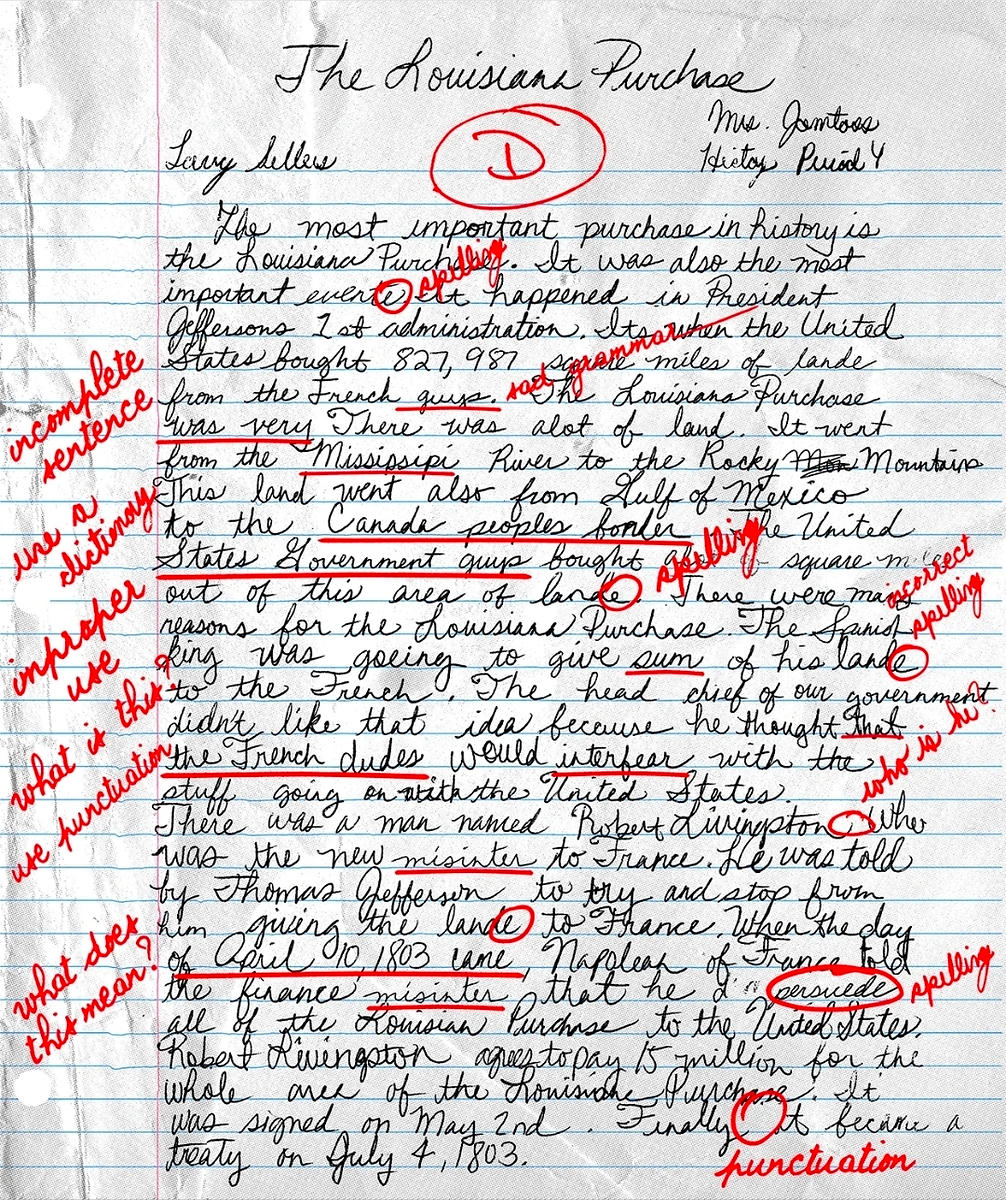 The Louisiana Purchase
Mrs. Jomtoss
Larry Sellers
D
History Period 4
The most important purchase in history is
the Louisiana Purchase. It was also the most
spelling
important evente It happened in President
Jeffersons 1st administration. Its when the United
sad grammar
States bought 827,987 square miles of lande
incomplete sentence
from the French guys. The Louisiana Purchase
was very There was alot of land. It went
from the Missipsipi River to the Rocky Mountains
use a dictionary
This land went also from Gulf of Mexico
to the Canada peoples border The United
spelling
States Government guys bought square
improper use
out of this area of lande. There were many
incorrect spelling
reasons for the Louisiana Purchase. The Spanish
king was goeing to give sum of his lande
what is this?
to the French. The head chief of our government
didn't like that idea because he thought that
use punctuation
the French dudes would interfear with the
who is he?
stuff going on with the United States.
There was a man named Robert Livingston. Who
was the new misinter to France. He was told
by Thomas Jefferson to try and stop from
him giving the lande to France. When the day
what does this mean?
of April 10, 1803 came, Napolean of France told
the finance misinter that he persuede
spelling
all of the Louisian Purchase to the United States.
Robert Livingston agrees to pay 15 million for the
whole area of the Louisiana Purchase. It
was signed on May 2nd. Finally it became a
treaty on July 4, 1803.
punctuation